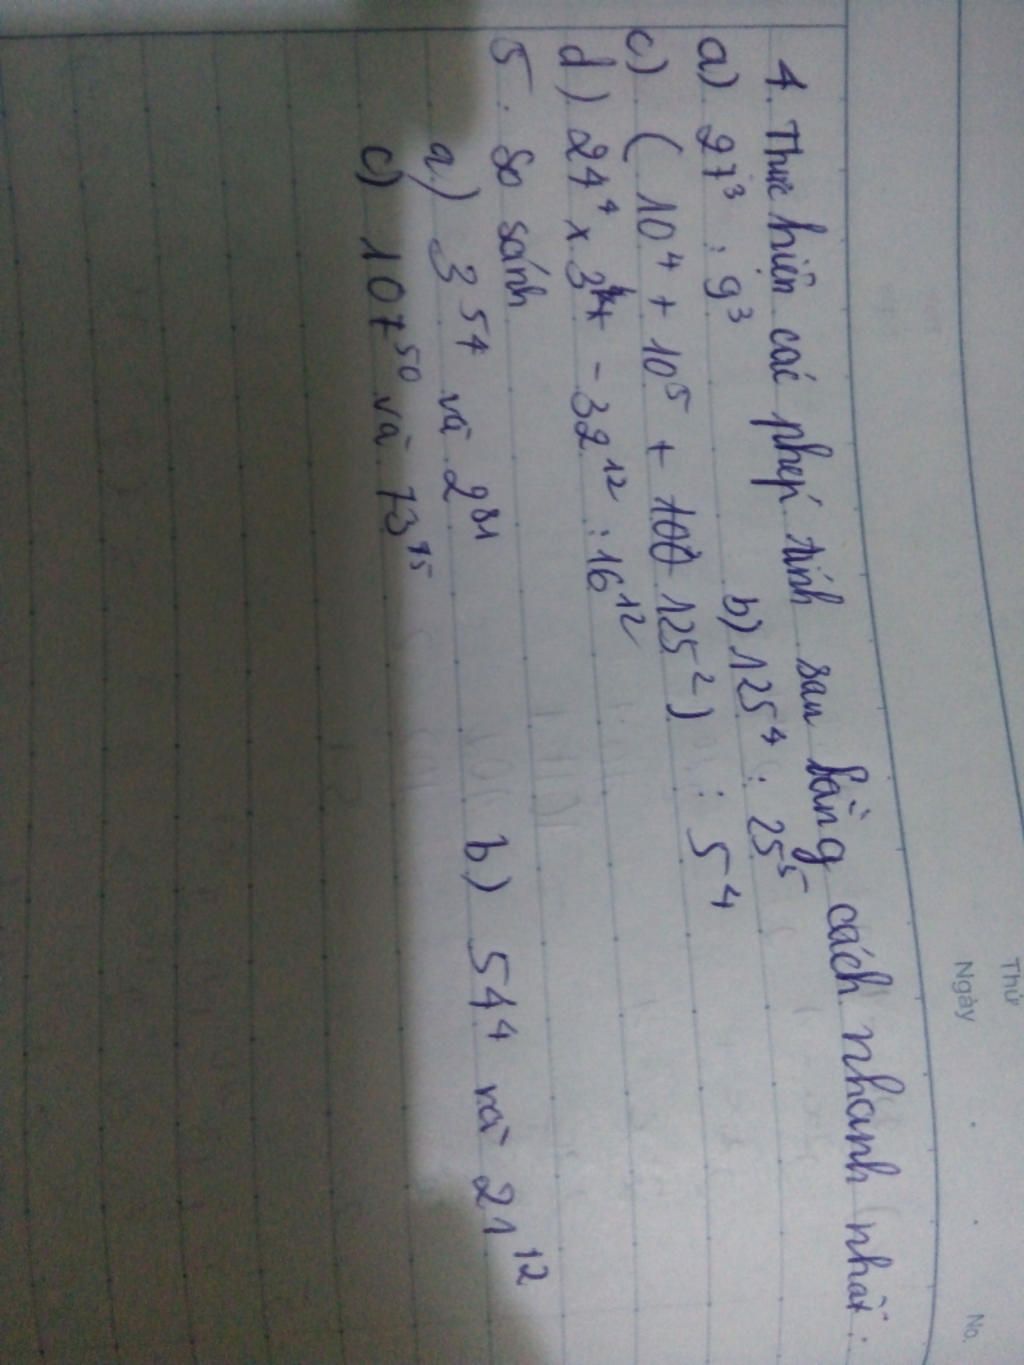 Thứ
Ngày
No.
4. Thực hiện các phép tính sau bằng cách nhanh nhất:
a) 27³ : 9³ b) 125⁴ : 25⁵
c) (10⁴ + 10⁵ + 125²) : 5⁴
d) 24⁴ x 3⁴ - 32¹² : 16¹²
5. So sánh
a) 3⁵⁴ và 2⁸¹ b) 54⁴ và 21¹²
c) 107⁵⁰ và 73⁷⁵